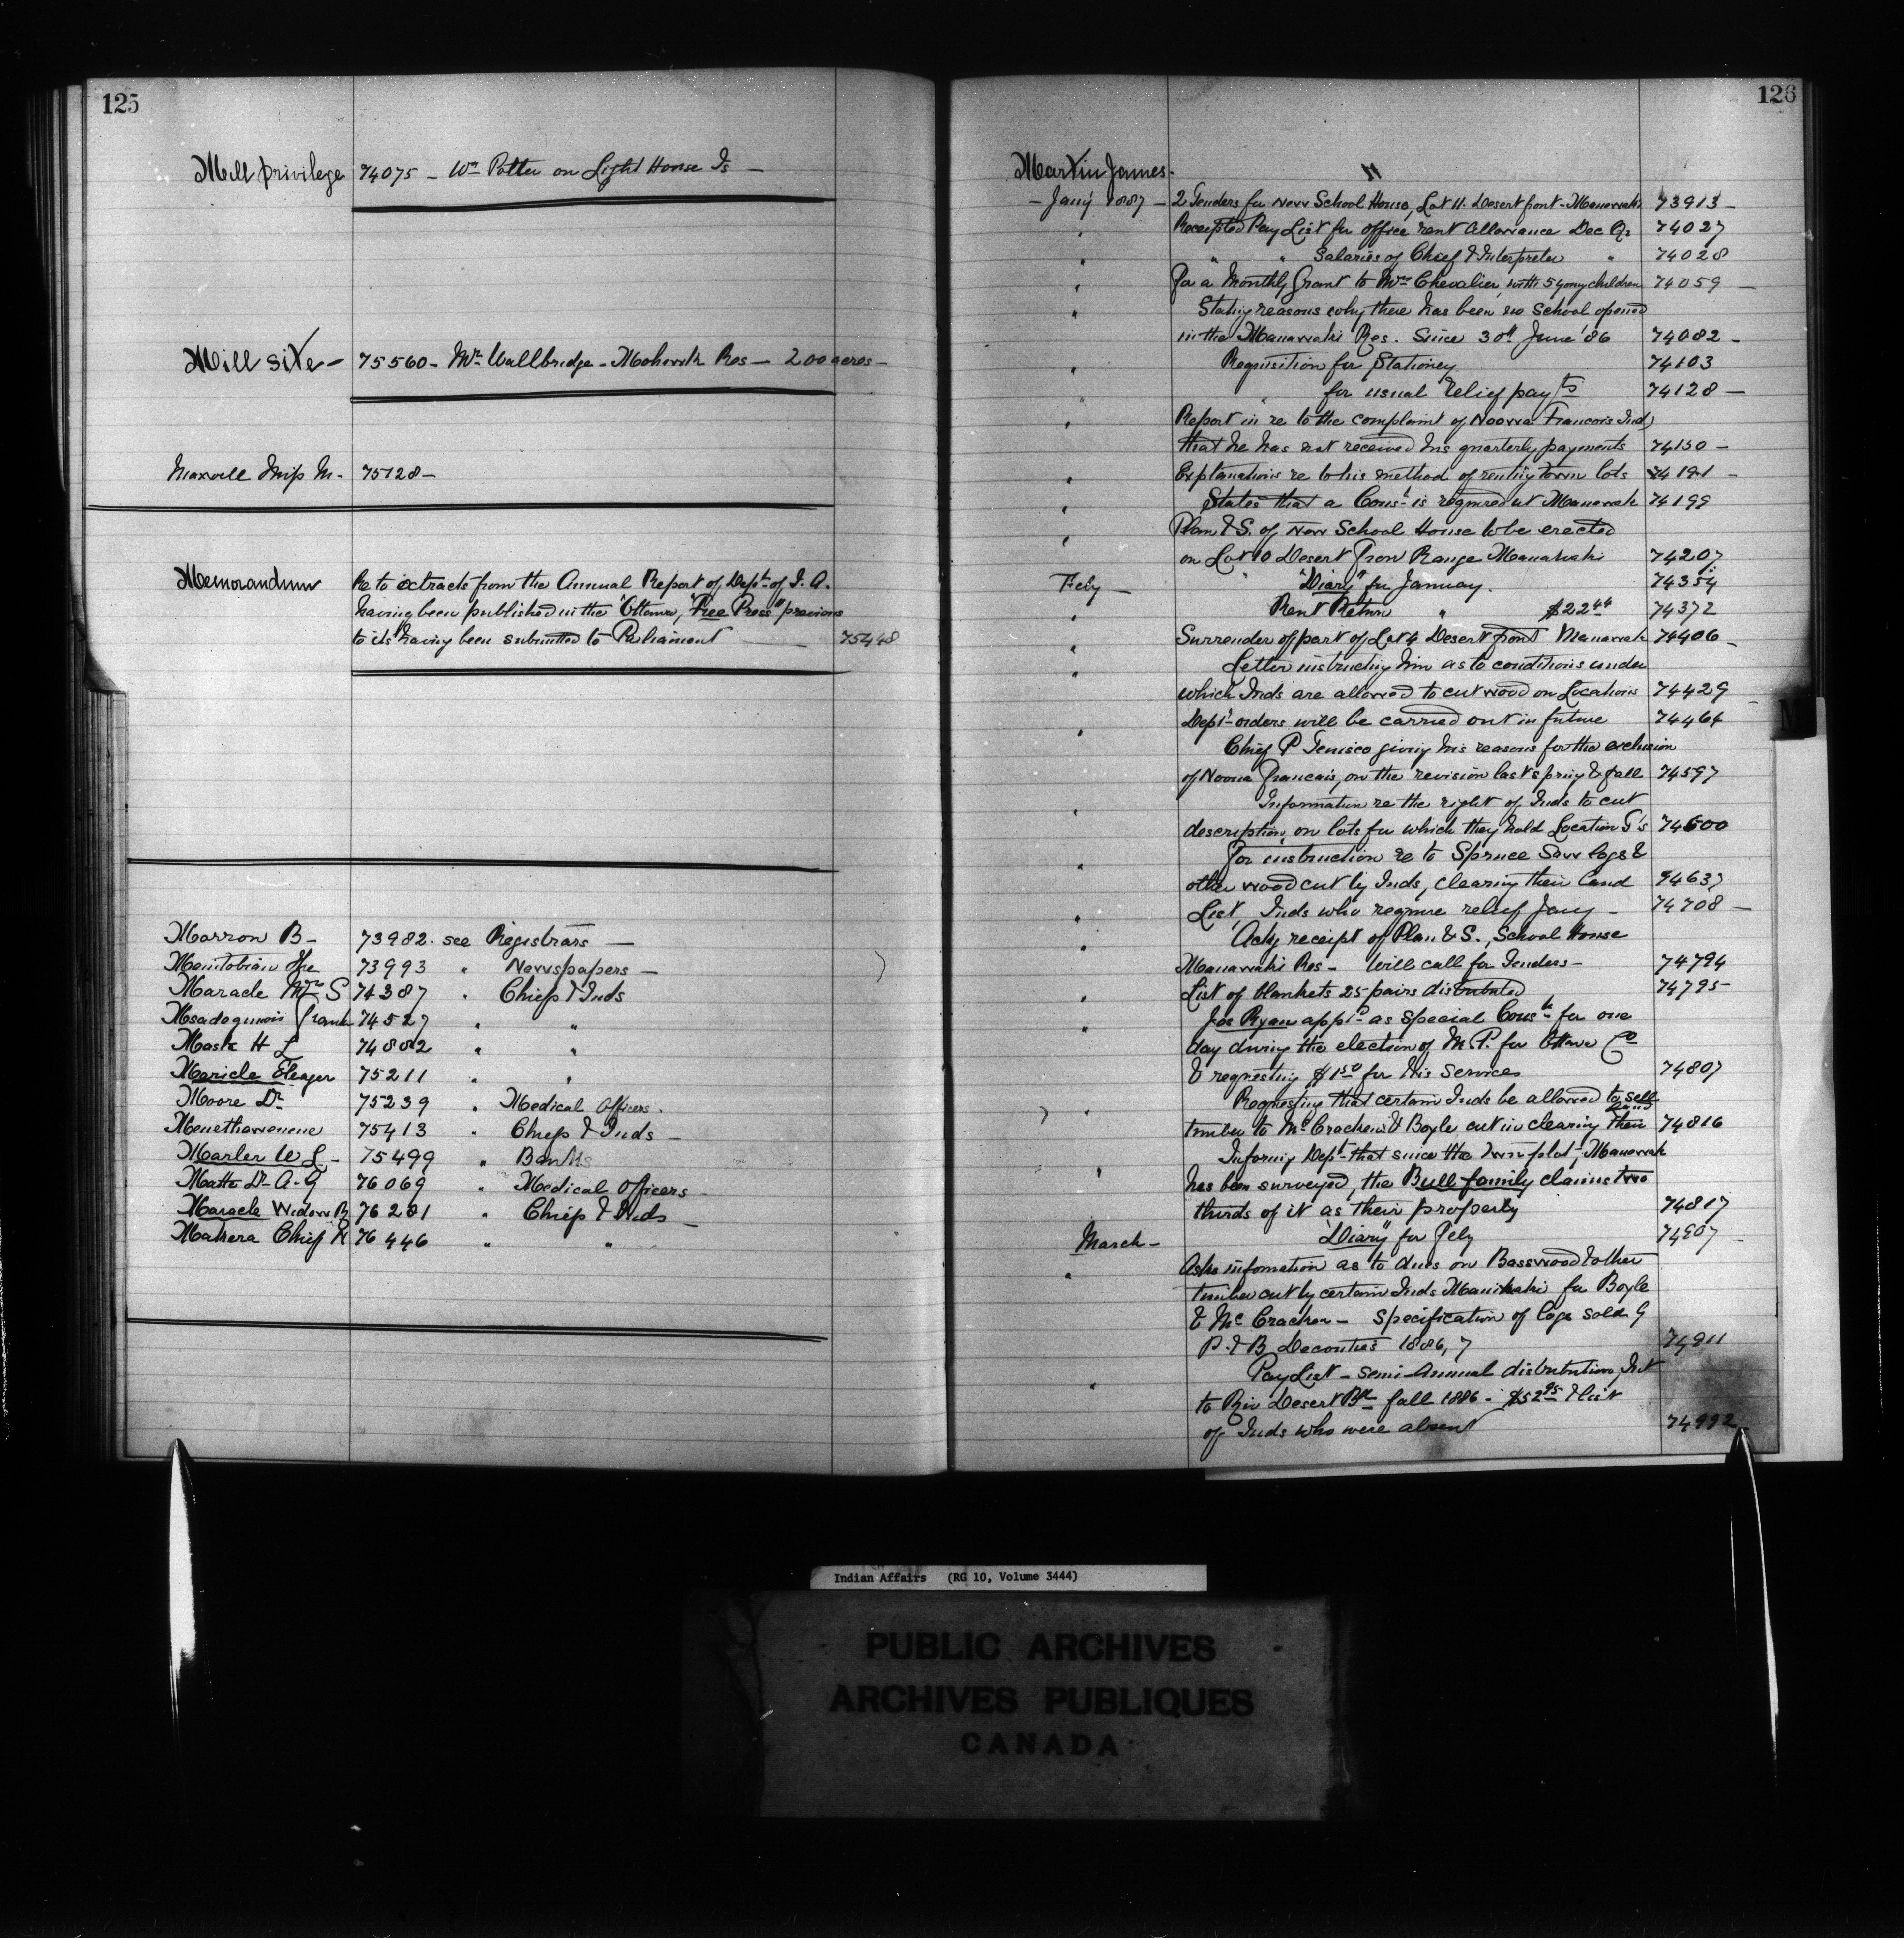 125
Mill privilege 74075 - Wm Potter on Light House Is -
Mill site - 75560 - Mr Wallbridge - Mohawk Res - 200 acres -
Maxwell 75128 -
Memorandum Re to extracts from the Annual Report of Dept of I. A.
having been published in the "Ottawa, Free Press" previous
to its having been submitted to Parliament 75448
Marron B - 73982 . see Registrars -
Manitobian The 73993 " Newspapers -
Maracle Mrs S 74387 " Chiefs & Inds
Frank 74527 " "
Mask H L 74882 " "
Maricle Eleazer 75211 " "
Moore Dr 75239 " Medical Officers .
Menethawenene 75413 " Chiefs & Inds -
Marler W L - 75499 " Banks
Matte Dr A. G 76069 " Medical Officers
Maracle Widow B 76281 " Chiefs & Inds -
Chief 76446 " "
126
Martin James . "
- Jany 1887 - 2 Tenders for New School House, Lot 11. Desert front - Maniwaki 73913 -
" Receipted Pay List for office rent allowance Dec Qr 74027
" " " Salaries of Chief & Interpreter " 74028
" For a Monthly Grant to Mrs Chevalier, with 5 young children 74059 -
" Stating reasons why there has been no School opened
in the Manawaki Res. Since 30th June '86 74082 -
" Requisition for Stationery 74103
" " for usual relief payts 74128 -
" Report in re to the complaint of Noowa Francois Ind)
that he has not received his quarterly payments 74150 -
" Explanations re to his method of renting town lots 74191 -
" States that a Const is required at Manawak 74199
" Plan & S. of New School House to be erected
on Lot 10 Desert Fron Range Manawaki 74207
Feby - "Diary" for January. 74354
" Rent Return " $22 44 74372
" Surrender of part of Lot 4 Desert front Manawak 74406 -
" Letter instructing him as to conditions under
which Inds are allowed to cut wood on Locations 74429
" Dept orders will be carried out in future 74464
Chief P Tenisco giving his reasons for the exclusion
of Noowa Francais, on the revision last spring & fall 74597
" Information re the right of Inds to cut
description, on lots for which they hold Location T's 74600
" For instruction re to Spruce Saw logs &
other wood cut by Inds, clearing their Land 74637
" List, Inds who require relief Jany - 74708 -
" Ackg receipt of Plan & S., School House
Manawaki Res - Will call for Tenders - 74794
" List of blankets 25 pairs distributed 74795
" Jos Ryan appd as Special Const for one
day during the election of M.P. for Ottawa Co
& requesting $1 50 for his Services 74807
" Requesting that certain Inds be allowed to sell
timber to McCracken & Boyle cut in clearing their land 74816
" Informing Dept that since the town plot, Manawak
has been surveyed, the Bull family claims two
thirds of it as their property 74817
March - "Diary" for Feby 74907 -
" Asks infomation as to dues on Basswood & other
timber cut by certain Inds Maniwaki for Boyle
& McCracken - Specification of logs sold G
P. & B Decontie's 1886, 7 74911
" Pay List - Semi-Annual distribution Int
to Riv Desert Bd fall 1886 - $52 95 & list
of Inds who were absent 74992
M
Indian Affairs (RG 10, Volume 3444)
PUBLIC ARCHIVES
ARCHIVES PUBLIQUES
CANADA